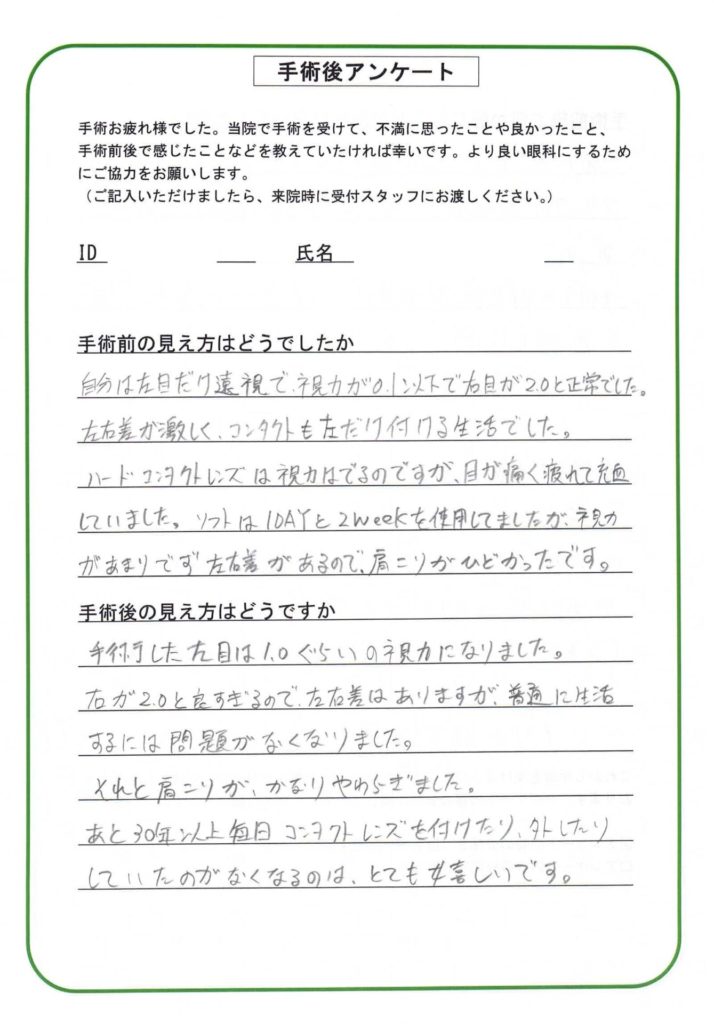 手術後アンケート
手術お疲れ様でした。当院で手術を受けて、不満に思ったことや良かったこと、
手術前後で感じたことなどを教えていたければ幸いです。より良い眼科にするため
にご協力をお願いします。
（ご記入いただけましたら、来院時に受付スタッフにお渡しください。）
ID 氏名
手術前の見え方はどうでしたか
自分は左目だけ遠視で、視力が0.1以下で右目が2.0と正常でした。
左右差が激しく、コンタクトも左だけ付ける生活でした。
ハードコンタクトレンズは視力はでるのですが、目が痛く疲れて充血
していました。ソフトは1DAYと2weekを使用してましたが、視力
があまりでず左右差があるので、肩こりがひどかったです。
手術後の見え方はどうですか
手術した左目は1.0ぐらいの視力になりました。
右が2.0と良すぎるので、左右差はありますが、普通に生活
するには問題がなくなりました。
それと肩こりが、かなりやわらぎました。
あと30年以上毎日コンタクトレンズを付けたり、外したり
していたのがなくなるのは、とても嬉しいです。